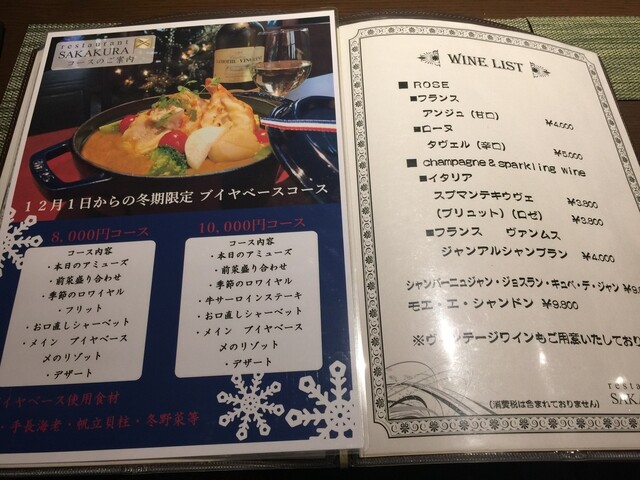 restaurant
SAKAKURA
コースのご案内
12月1日からの冬期限定 ブイヤベースコース
8,000円コース
コース内容
・本日のアミューズ
・前菜盛り合わせ
・季節のロワイヤル
・フリット
・お口直しシャーベット
・メイン ブイヤベース
〆のリゾット
・デザート
10,000円コース
コース内容
・本日のアミューズ
・前菜盛り合わせ
・季節のロワイヤル
・牛サーロインステーキ
・お口直しシャーベット
・メイン ブイヤベース
〆のリゾット
・デザート
イヤベース使用食材
・手長海老・帆立貝柱・冬野菜等
WINE LIST
■ ROSE
■フランス
アンジュ(甘口) ¥4,000
■ローヌ
タヴェル(辛口) ¥5,000
■ champagne & sparkling wine
■イタリア
スプマンテキウヴェ ¥3,800
(ブリュット)(ロゼ) ¥3,800
■フランス ヴァンムス
ジャンアルシャンブラン ¥4,000
シャンパーニュジャン・ジョスラン・キュベ・デ・ジャン
モエ・エ・シャンドン ¥9,800
※ヴィンテージワインもご用意いたしてお
(消費税は含まれておりません)
resta
SAKA